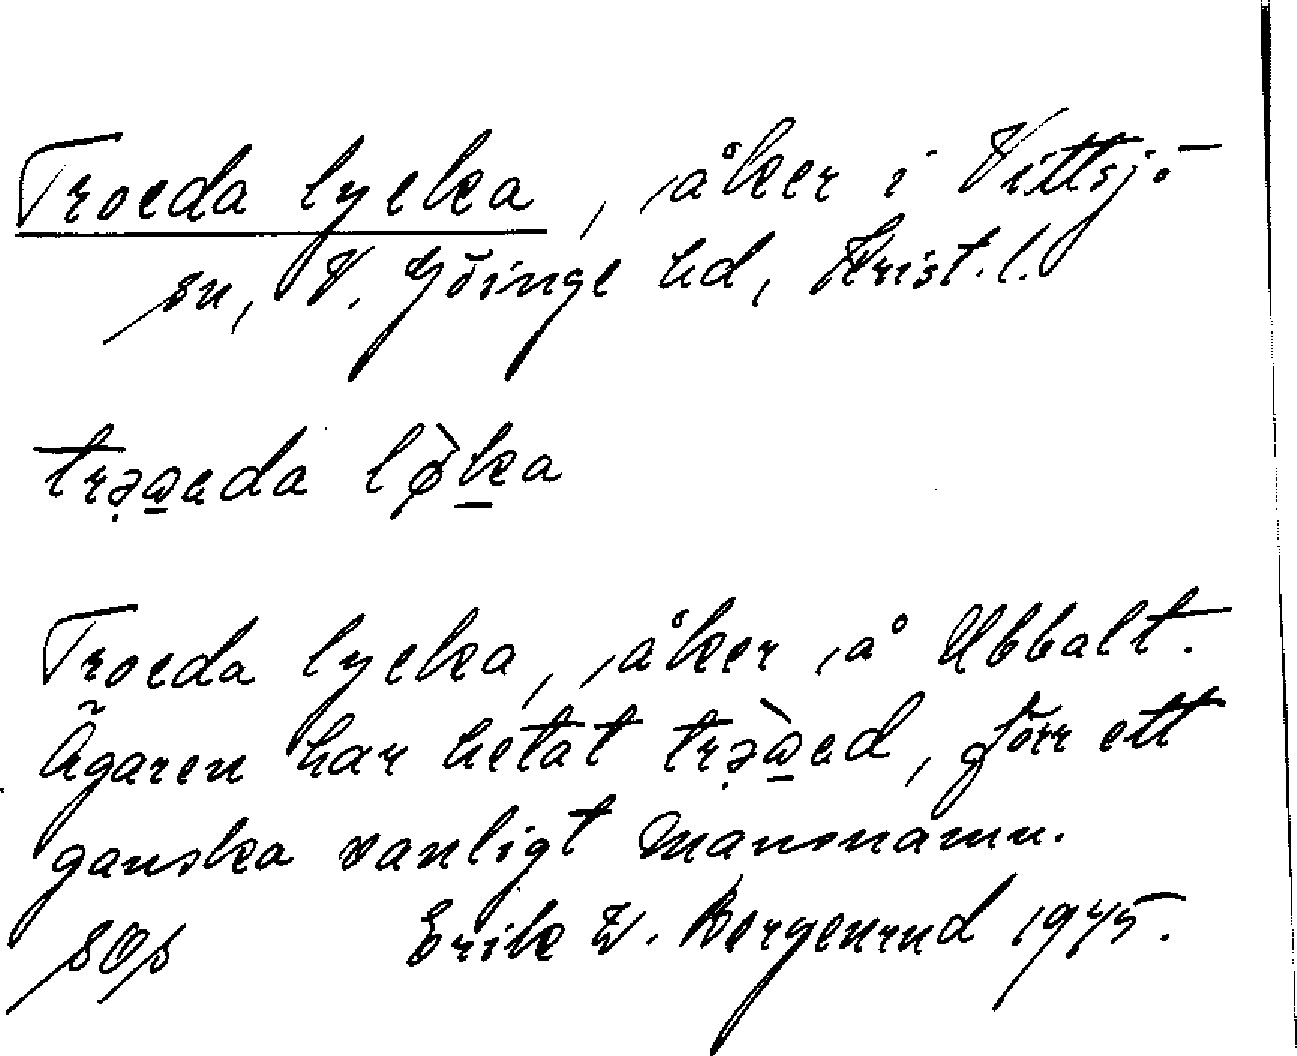 Troeda lycka, åker i Vittsjö
sn, V. Göinge hd, Krist. l.
Troeda lycka, åker å Ubbalt.
Ägaren har hetat , förr ett
ganska vanligt mansnamn.
SOS Erik W. Bergenrud 1945.